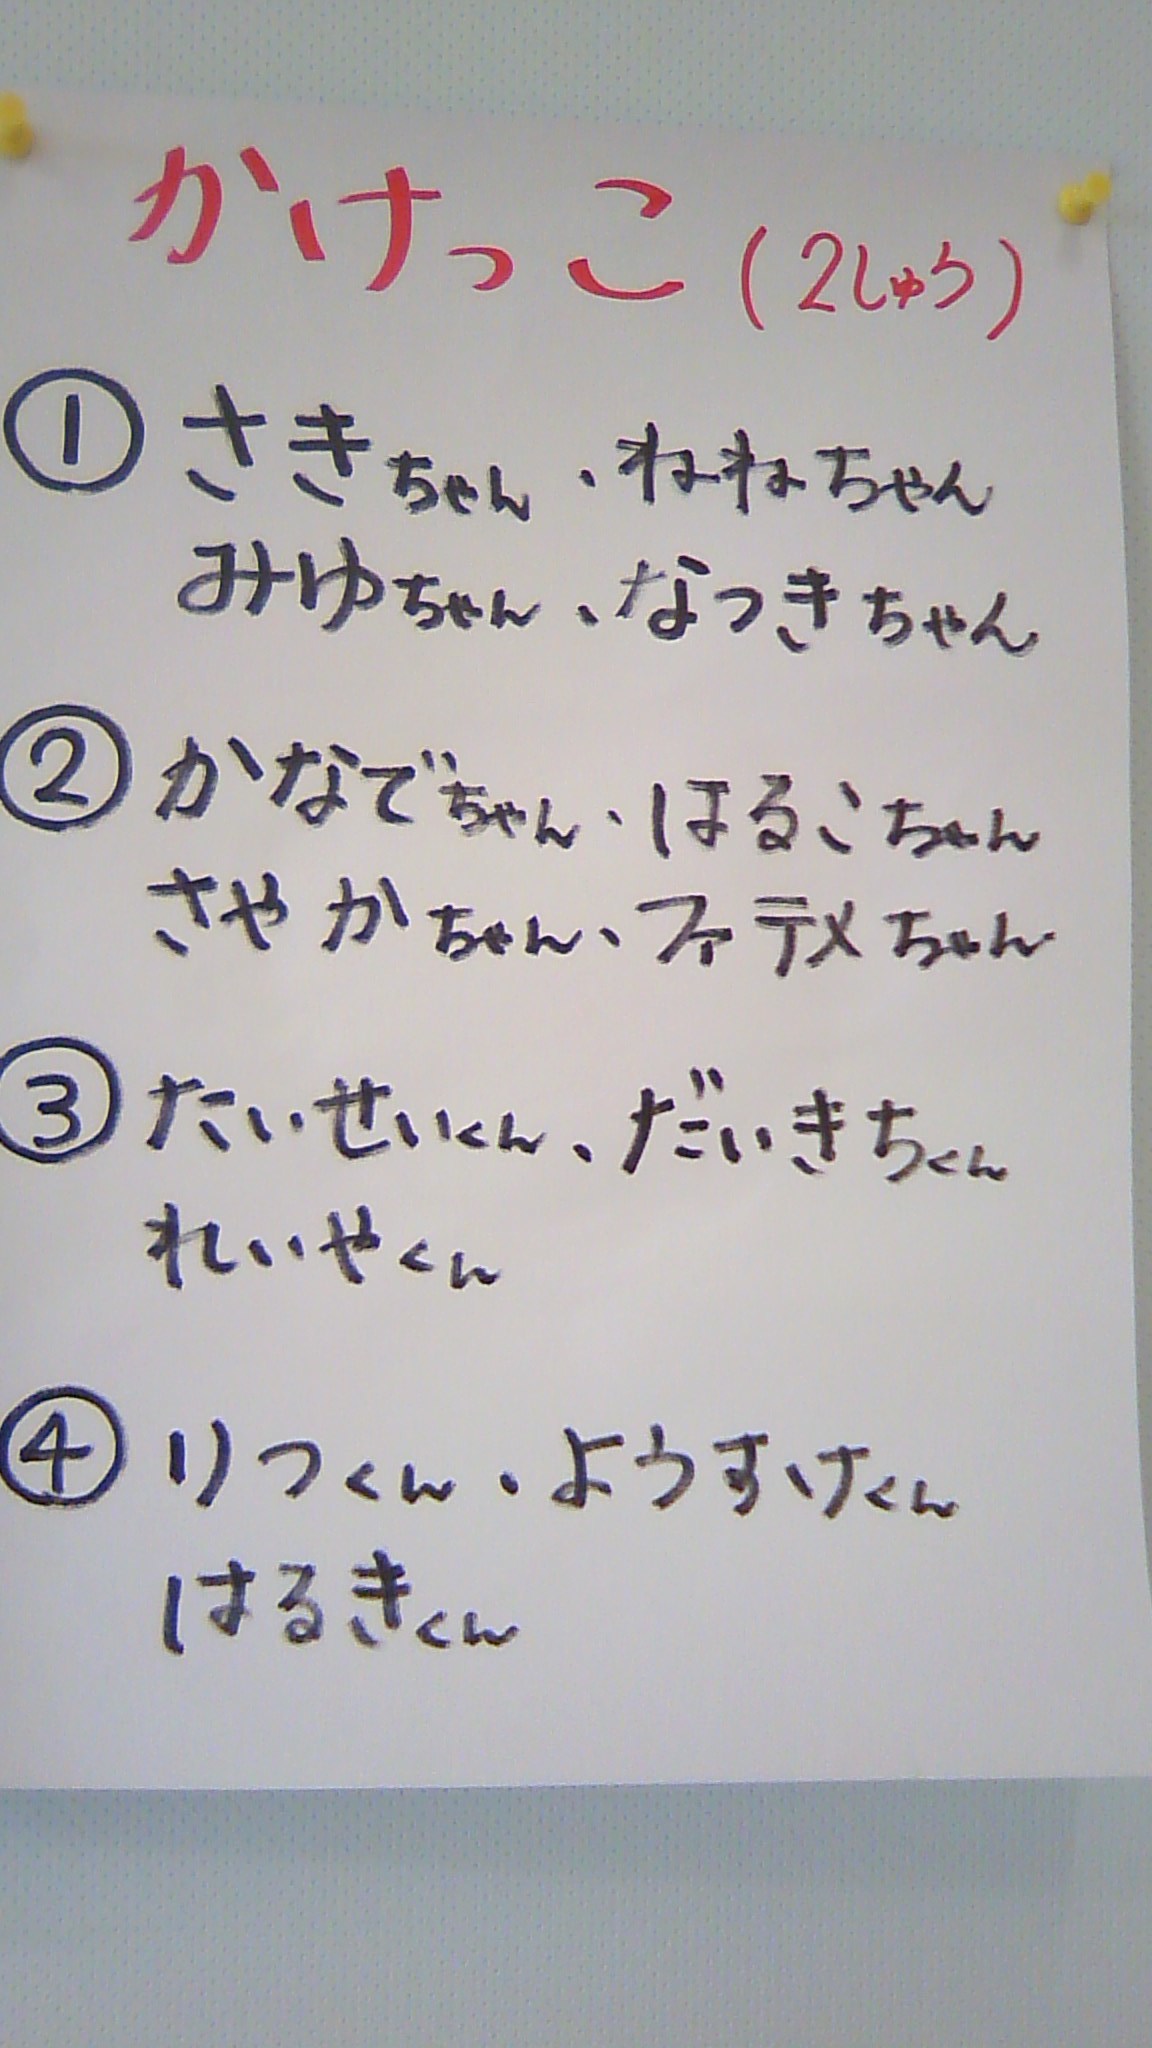 かけっこ(2しゅう)
①さきちゃん、ねねちゃん
みゆちゃん、なつきちゃん
②かなでちゃん、はるこちゃん
さやかちゃん、ファテメちゃん
③たいせいくん、だいきちくん
れいやくん
④りつくん、ようすけくん
はるきくん